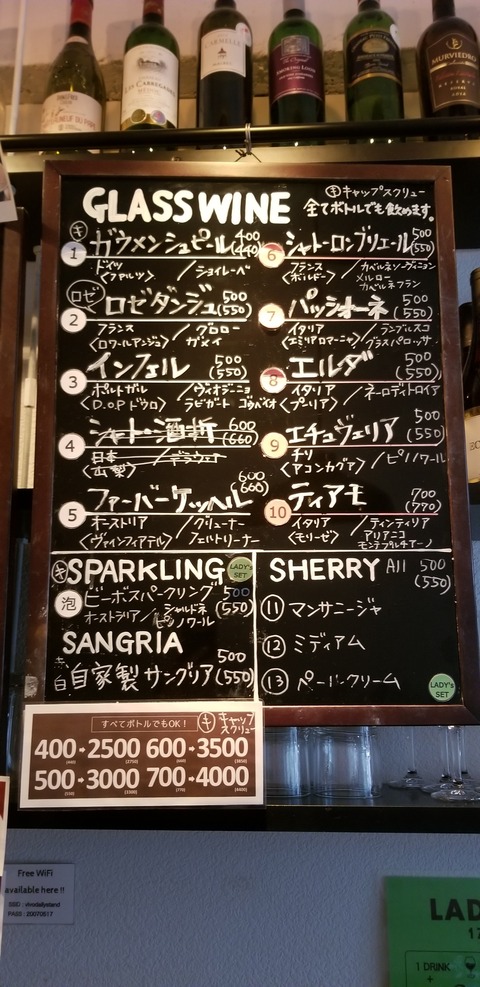 LES CABREGANES
CARMELLE
SMOKING LOON
MURVIEDRO
RESERVA
GLASS WINE
㋖キャップスクリュー
全てボトルでも飲めます。
㋖
1 ガウメンシュピール 400 (440)
ドイツ / ショイレーベ
〈ファルツ〉
ロゼ
2 ロゼダンジュ 500 (550)
フランス / グロロー
〈ロワールアンジュ〉 ガメイ
3 インフェル 500 (550)
ポルトガル / ヴィオジーニョ
〈D.O.P ドウロ〉 ラビガート ゴウベイオ
4 シャトー酒折 600 (660)
日本 / デラウェア
〈山梨〉
5 ファーバーケッヘル 600 (660)
オーストリア / グリューナー
〈ヴァインフィアテル〉 フェルトリーナー
6 シャトーロンブリエール 500 (550)
フランス / カベルネソーヴィニヨン
〈ボルドー〉 メルロー
カベルネフラン
7 パッショーネ 500 (550)
イタリア / ランブルスコ
〈エミリアロマーニャ〉 グラスパロッサ
8 エルダ 500 (550)
イタリア / ネーロディトロイア
〈プーリア〉
9 エチュヴェリア 500 (550)
チリ / ピノノワール
〈アコンカグア〉
10 ティアモ 700 (770)
イタリア / ティンティリア
〈モリーゼ〉 アリアニコ
モンテプルチアーノ
㋖SPARKLING LADY's SET
泡 ビーボスパークリング 500 (550)
オーストラリア / シャルドネ
ピノノワール
SANGRIA
赤 白 自家製サングリア 500 (550)
SHERRY All 500 (550)
⑪ マンサニージャ
⑫ ミディアム
⑬ ペールクリーム
LADY's SET
すべてボトルでもOK! ㋖キャップスクリュー
400→2500 600→3500
(440) (2750) (660) (3850)
500→3000 700→4000
(550) (3300) (770) (4400)
Free WiFi
available here !!
SSID : vivodailystand
PASS : 20070517
LAD
1 DRINK
+